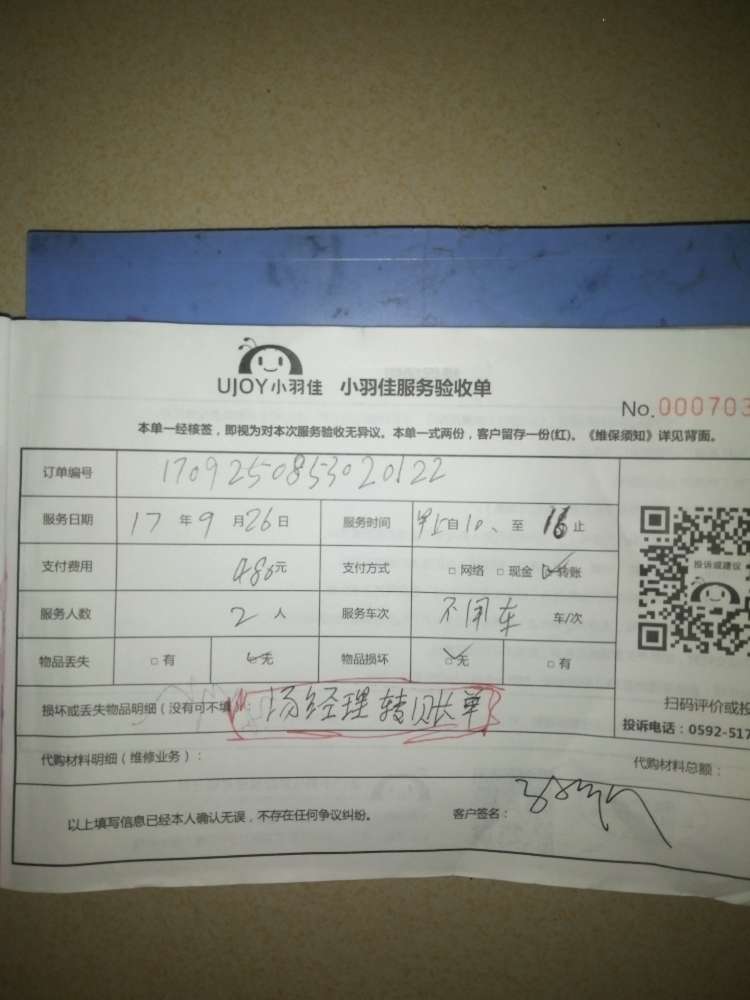 UJOY小羽佳 小羽佳服务验收单
No.000703
本单一经核签，即视为对本次服务验收无异议。本单一式两份，客户留存一份(红)。《维保须知》详见背面。
订单编号 1709250853020122
服务日期 17年9月26日 服务时间 早上自10、至16止
支付费用 480元 支付方式 □网络 □现金 ☑转账
服务人数 2人 服务车次 不用车 车/次
物品丢失 □有 ☑无 物品损坏 ☑无 □有
投诉或建议
损坏或丢失物品明细（没有可不填）： 汤经理转账单
扫码评价或投
投诉电话：0592-517
代购材料明细（维修业务）： 代购材料总额：
以上填写信息已经本人确认无误，不存在任何争议纠纷。 客户签名：